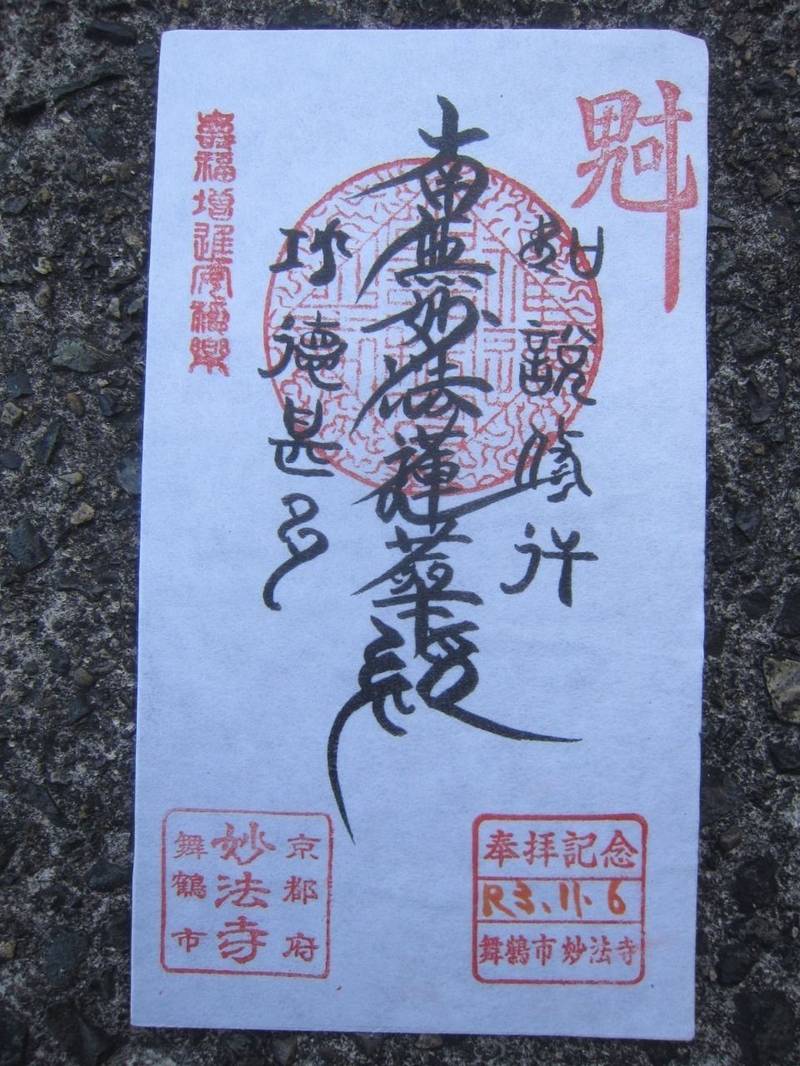 魁
如説修行
南無妙法蓮華経
功徳甚多
壽福増進
奉拝記念
R3.11.6
舞鶴市妙法寺
京都府
妙法寺
舞鶴市